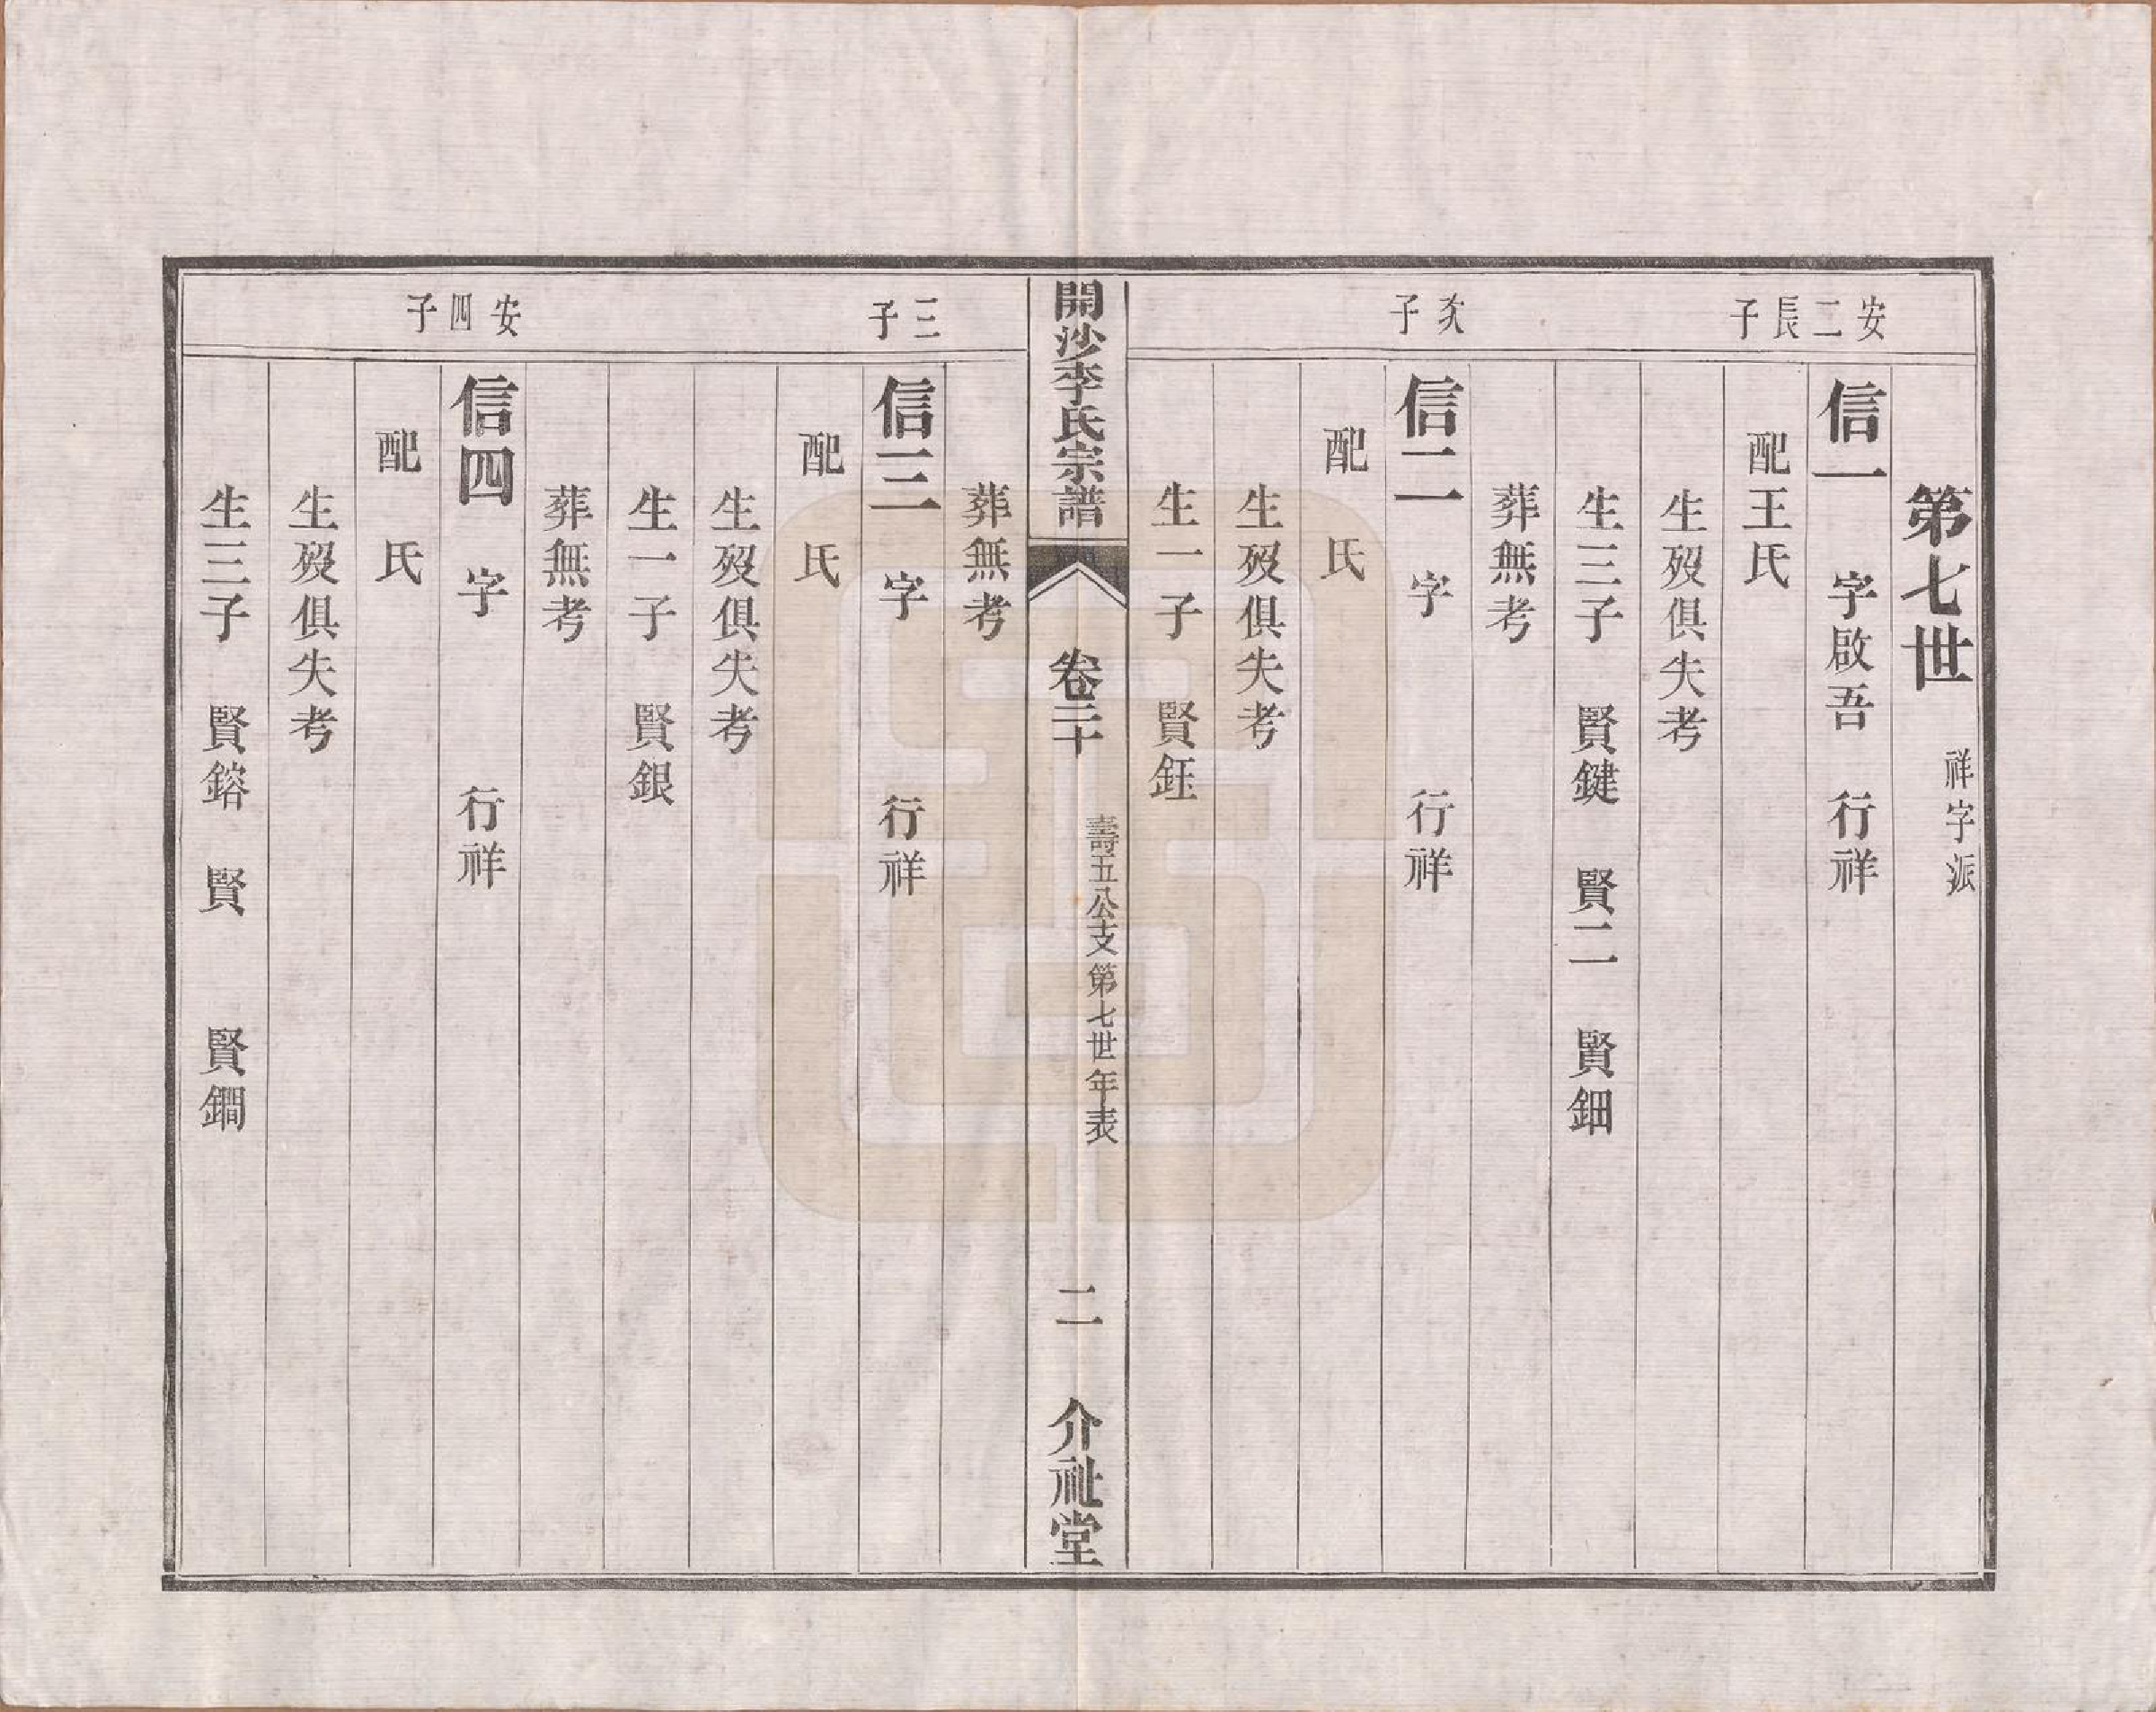 第七世 祥字派
安二長子
信一 字啟吾 行祥
配王氏
生歿俱失考
生三子 賢鍵 賢二 賢鈿
葬無考
次子
信二 字 行祥
配 氏
生歿俱失考
生一子 賢鈺
開沙李氏宗譜 卷二十 壽五公支第七世年表 二 介祉堂
葬無考
三子
信三 字 行祥
配 氏
生歿俱失考
生一子 賢銀
葬無考
安四子
信四 字 行祥
配 氏
生歿俱失考
生三子 賢鎔 賢 賢鐗